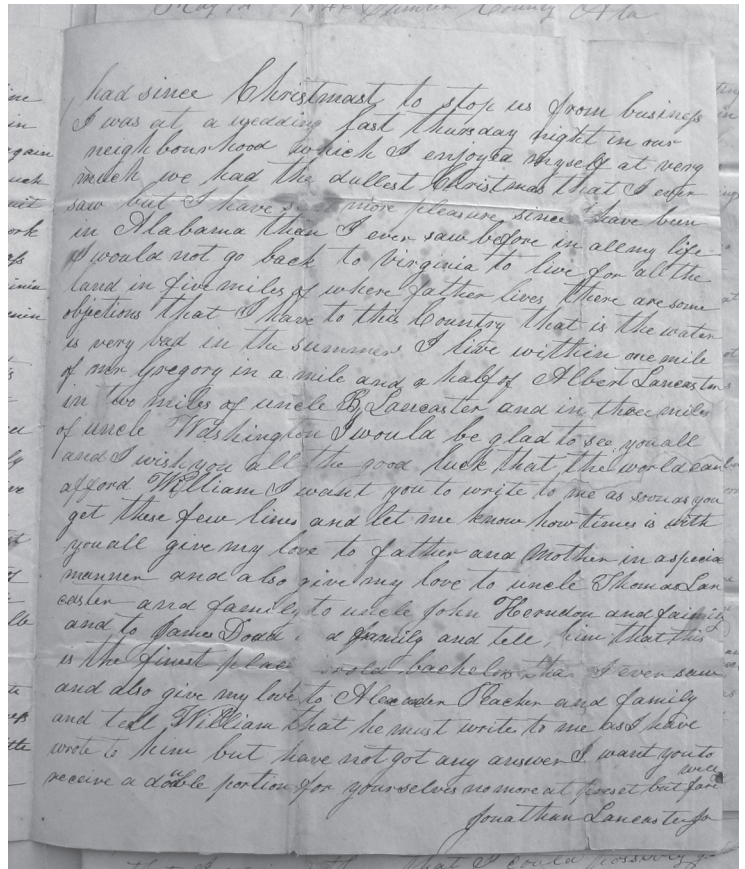 May 12 1844 Sumter County Ala
had since Christmast to stop us from business
I was at a wedding last thursday night in our
neighbourhood which I enjoyed myself at very
much we had the dullest Christmas that I ever
saw but I have more pleasure since I have been
in Alabama than I ever saw before in all my life
I would not go back to Virginia to live for all the
land in five miles of where father lives there are some
objections that I have to this Country that is the water
is very bad in the summer I live within one mile
of mr Gregory in a mile and a half of Albert Lancasters
in two miles of uncle B Lancaster and in three miles
of uncle Washington I would be glad to see you all
and I wish you all the good luck that the world can
afford William I want you to write to me as soon as you
get these few lines and let me know how times is with
you all give my love to father and Mother in aspecia
manner and also give my love to uncle Thomas Lan
caster and family to uncle John Herndon and family
and to James Doad family and tell him that this
is the finest place old bachelors that I ever saw
and also give my love to Alexander Peacher and family
and teal William that he must write to me as I have
wrote to him but have not got any answer I want you to
receive a double portion for yourselves no more at preset but fare
well
Jonathan Lancaster Jr
that I could possibly